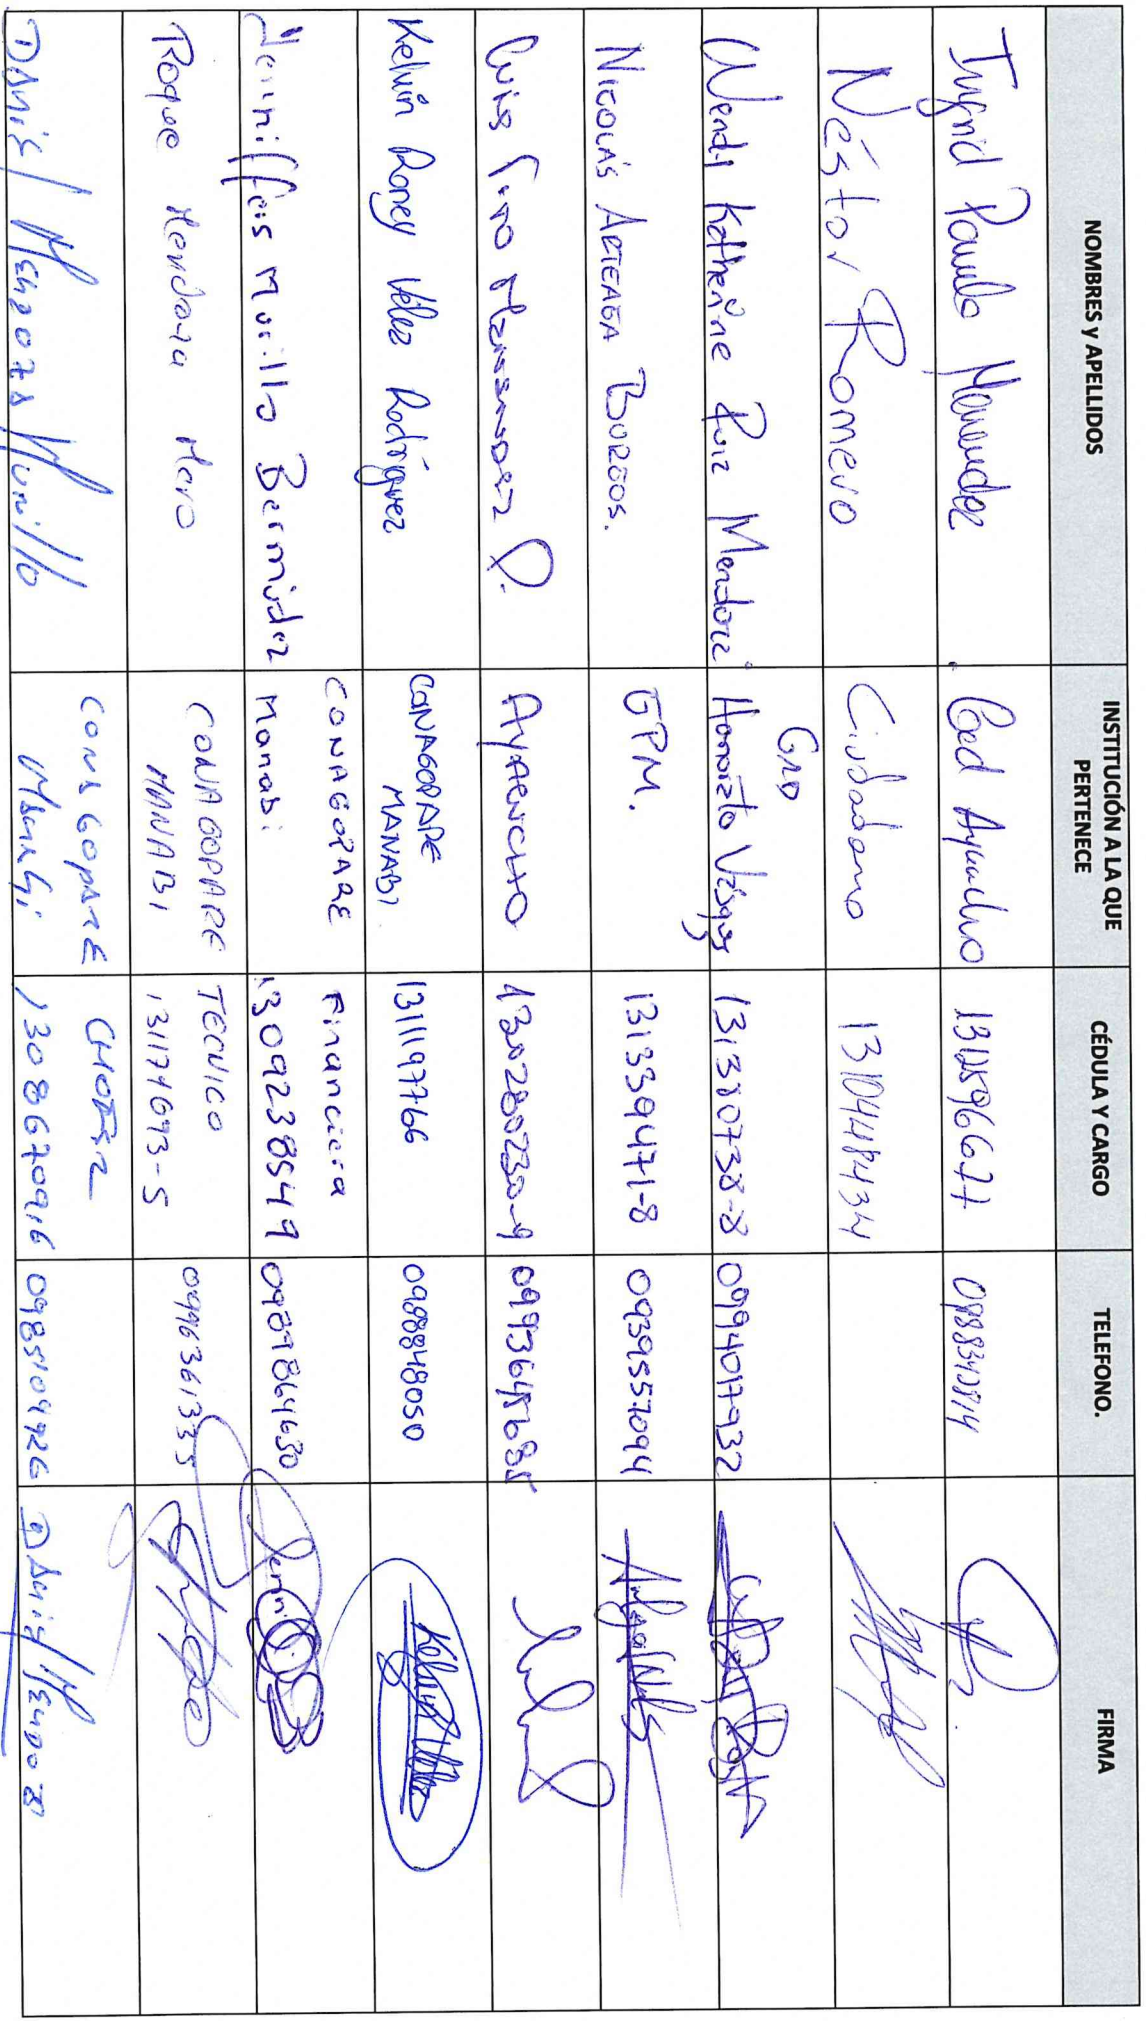 NOMBRES y APELLIDOS
INSTITUCIÓN A LA QUE PERTENECE
CÉDULA Y CARGO
TELEFONO.
FIRMA
Ingrid Menendez
Ged Ayacucho
Néstor Romero
Ciudadano
1310448434
Wendy Katherine Ruiz Mendoza
GAD
Honorato Vásquez
131380738-8
0994017932
NICOLÁS ARTEAGA BURGOS.
GPM.
131339471-8
0939557094
Luis
AYACUCHO
130280230-9
Kelvin Roney Vélez Rodríguez
CONAGOPARE
MANABI
1311197766
0988848050
Jenniffer Murillo Bermúdez
CONAGOPARE
Manabi
Financiera
1309238549
0987864630
Roque Mendoza Mero
CONAGOPARE
MANABI
TECNICO
131171693-5
0996361335
Daniel Mendoza Murillo
CONAGOPARE
Manabi
CHOFER
1308670916
0985109926
Daniel Mendoza